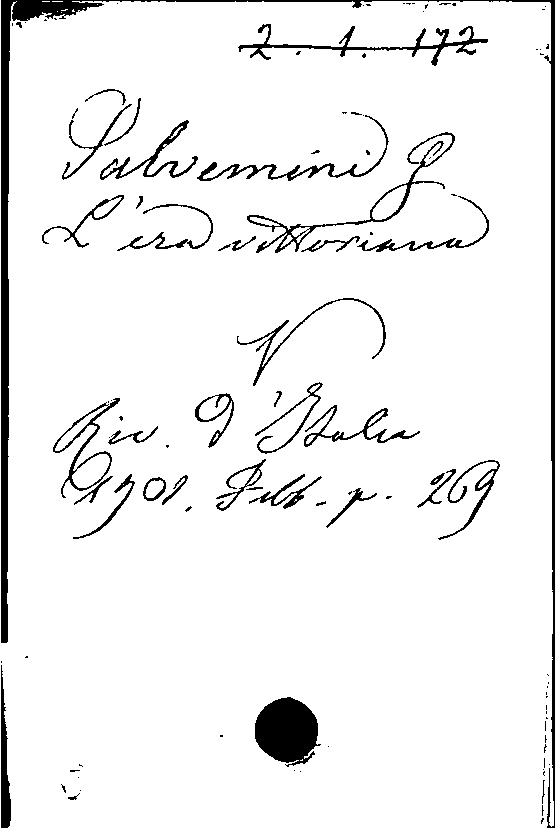 2. 1. 172
Salvemini G
L'era vittoriana
V
Riv. d'Italia
1901. Febb. p. 269